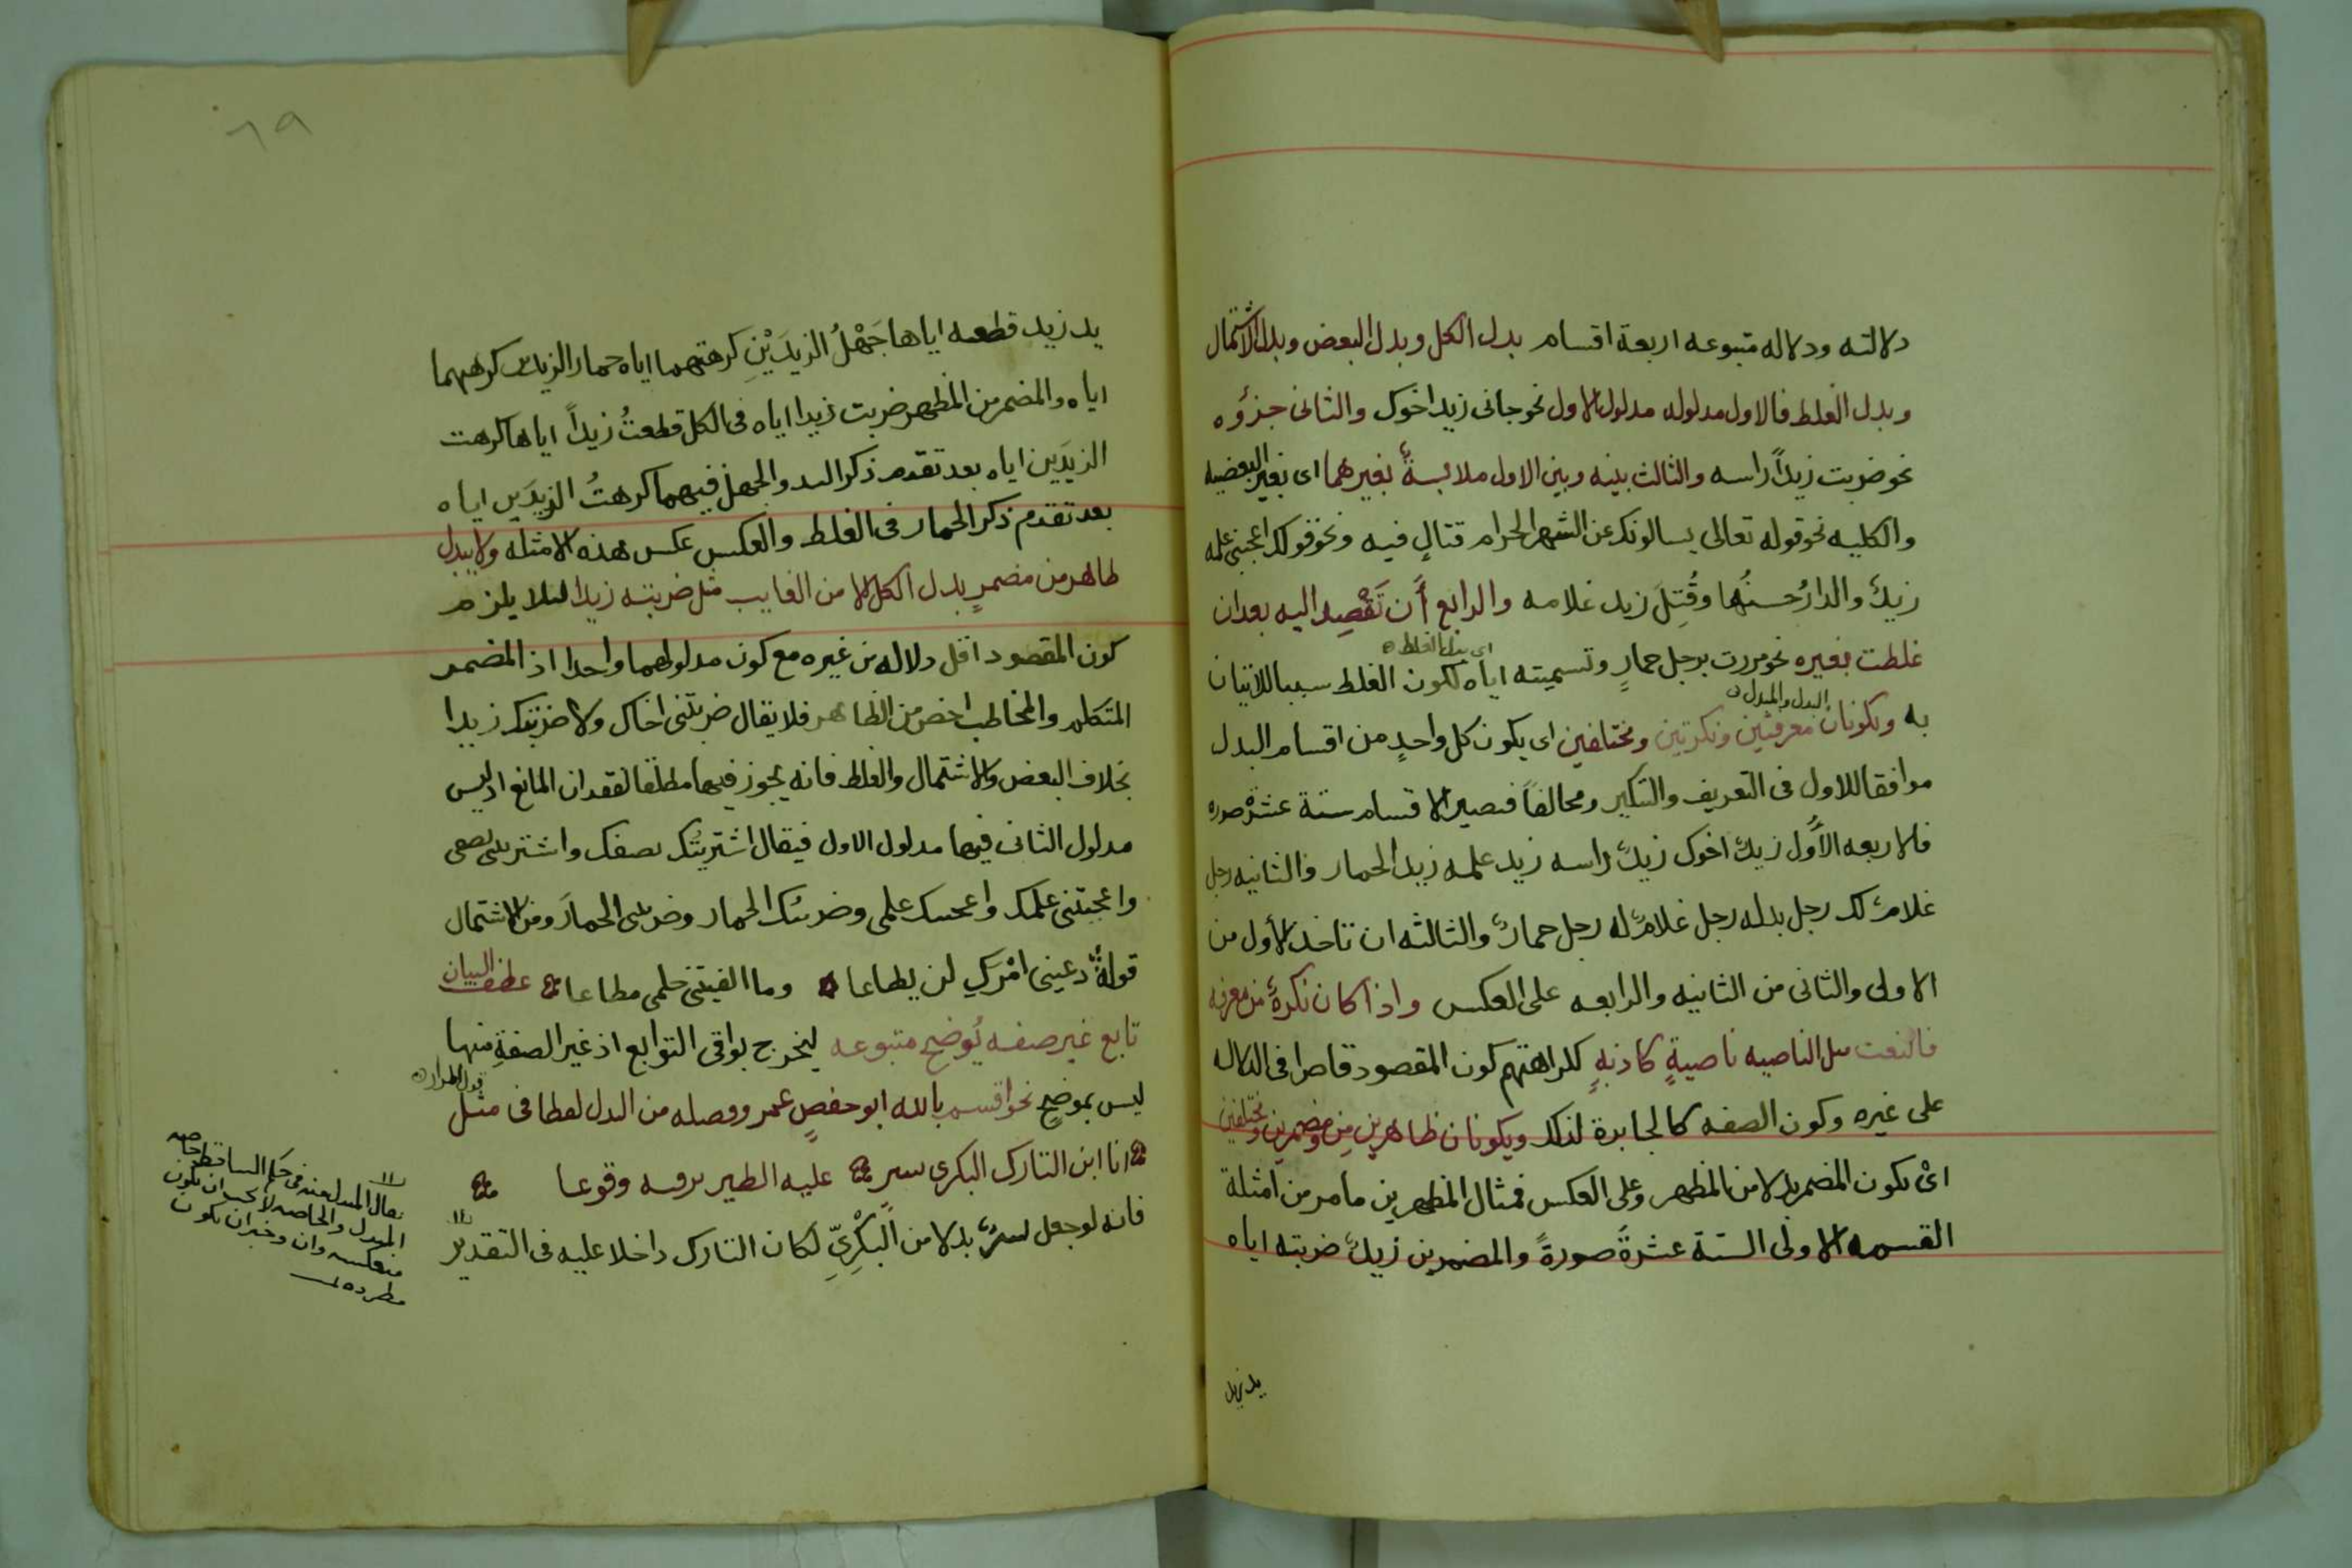 دلالته ودلاله متبوعه اربعة اقسام بدل الكل وبدل البعض وبدل الاشتمال
وبدل الغلط فالاول مدلوله مدلول الاول نحو جانى زيد اخوك والثانى جزؤه
نحو ضربت زيدًا راسه والثالث بينه وبين الاول ملابسةٌ بغيرهما اى بغير البعضيه
والكليه نحو قوله تعالى يسالونك عن الشهر الحرام قتالٍ فيه ونحو قولك اعجبنى علمه
زيدٌ والدارُ حسنُها وقُتِلَ زيد غلامه والرابع أن تَقْصِد اليه بعد ان
اى بدل الغلط
غلطت بغيره نحو مررت برجل حمارٍ وتسميته اياه لكون الغلط سببا للاتيان
البدل والمبدل
به ويكونان معرفتين ونكرتين ومختلفين اى يكون كل واحدٍ من اقسام البدل
موافقا للاول فى التعريف والتنكير ومخالفًا فيصير الاقسام ستة عشرة صوره
فالاربعه الأُول زيدٌ اخوك زيدٌ راسه زيد علمه زيد الحمار والثانيه رجل
غلامٌ لك رجل يد له رجل غلامٌ له رجل حمارٌ والثالثه ان تاخذ الأول من
الاولى والثانى من الثانيه والرابعه على العكس واذا كان نكرةً من معرفه
فالنعت مثل الناصيه ناصيةٍ كاذبهٍ لكراهتهم كون المقصود قاصرا فى الدلاله
على غيره وكون الصفه كالجابرة لذلك ويكونان ظاهرين ومضمرين ومختلفين
اىْ يكون المضمر بدلا من المظهر وعلى العكس فمثال المظهرين ما مر من امثلة
القسمه الاولى الستة عشرةً صورةً والمضمرين زيدٌ ضربته اياه
يد زيد
٦٩
يد زيد قطعه اياها جَهْلُ الزيدَيْنِ كرهتهما اياه حمار الزيدين كرهتهما
اياه والمضمر من المظهر ضربت زيدا اياه فى الكل قطعتُ زيدًا اياها كرهت
الزيدَين اياه بعد تقدم ذكر اليد والجهل فيهما كرهتُ الزيدَين اياه
بعد تقدم ذكر الحمار فى الغلط والعكس عكس هذه الامثله ولا يبدل
ظاهر من مضمرٍ بدل الكل الا من الغايب مثل ضربته زيدا لئلا يلزم
كون المقصود اقل دلاله من غيره مع كون مدلولهما واحدا اذ المضمر
المتكلم والمخاطب اخص من الظاهر فلا يقال ضربتنى اخاك ولا ضربتك زيدا
بخلاف البعض والاشتمال والغلط فانه يجوز فيها مطلقا لفقدان المانع اذ ليس
مدلول الثانى فيها مدلول الاول فيقال اشتريتُك نصفك واشتريتنى نصفى
واعجبتنى علمك واعجبتك علمى وضربتك الحمار وضربتنى الحمارَ ومن الاشتمال
قولهُ دعينى امْركِ لن يطاعا وما الفيتنى حلمى مطاعا عطف البيان
تابع غير صفه يُوضح متبوعه ليخرج بواقى التوابع اذ غير الصفةِ منها
قول المرار
ليس بموضحٍ نحو اقسم بالله ابو حفصٍ عمر وفصله من البدل لفظا فى مثل
انا ابن التارك البكرى بشرٍ عليه الطير ترقبه وقوعا
فانه لو جعل بشرٌ بدلا من البَكْرِيِّ لكان التارك داخلا عليه فى التقدير
يقال المبدل منه فى حكم الساقط
المبدل والخاصه لا يجب ان يكون
منعكسه وان وجب ان يكون
مطرده